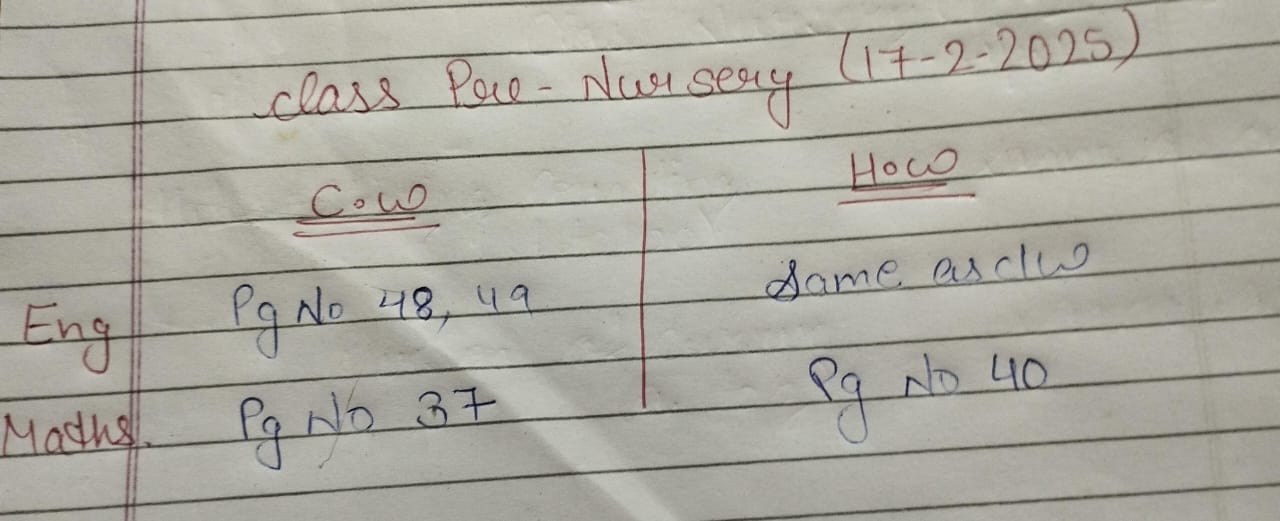 class Pre-Nursery (17-2-2025)
C.w H.w
Eng Pg No 48, 49 Same as c/w
Maths. Pg No 37 Pg No 40